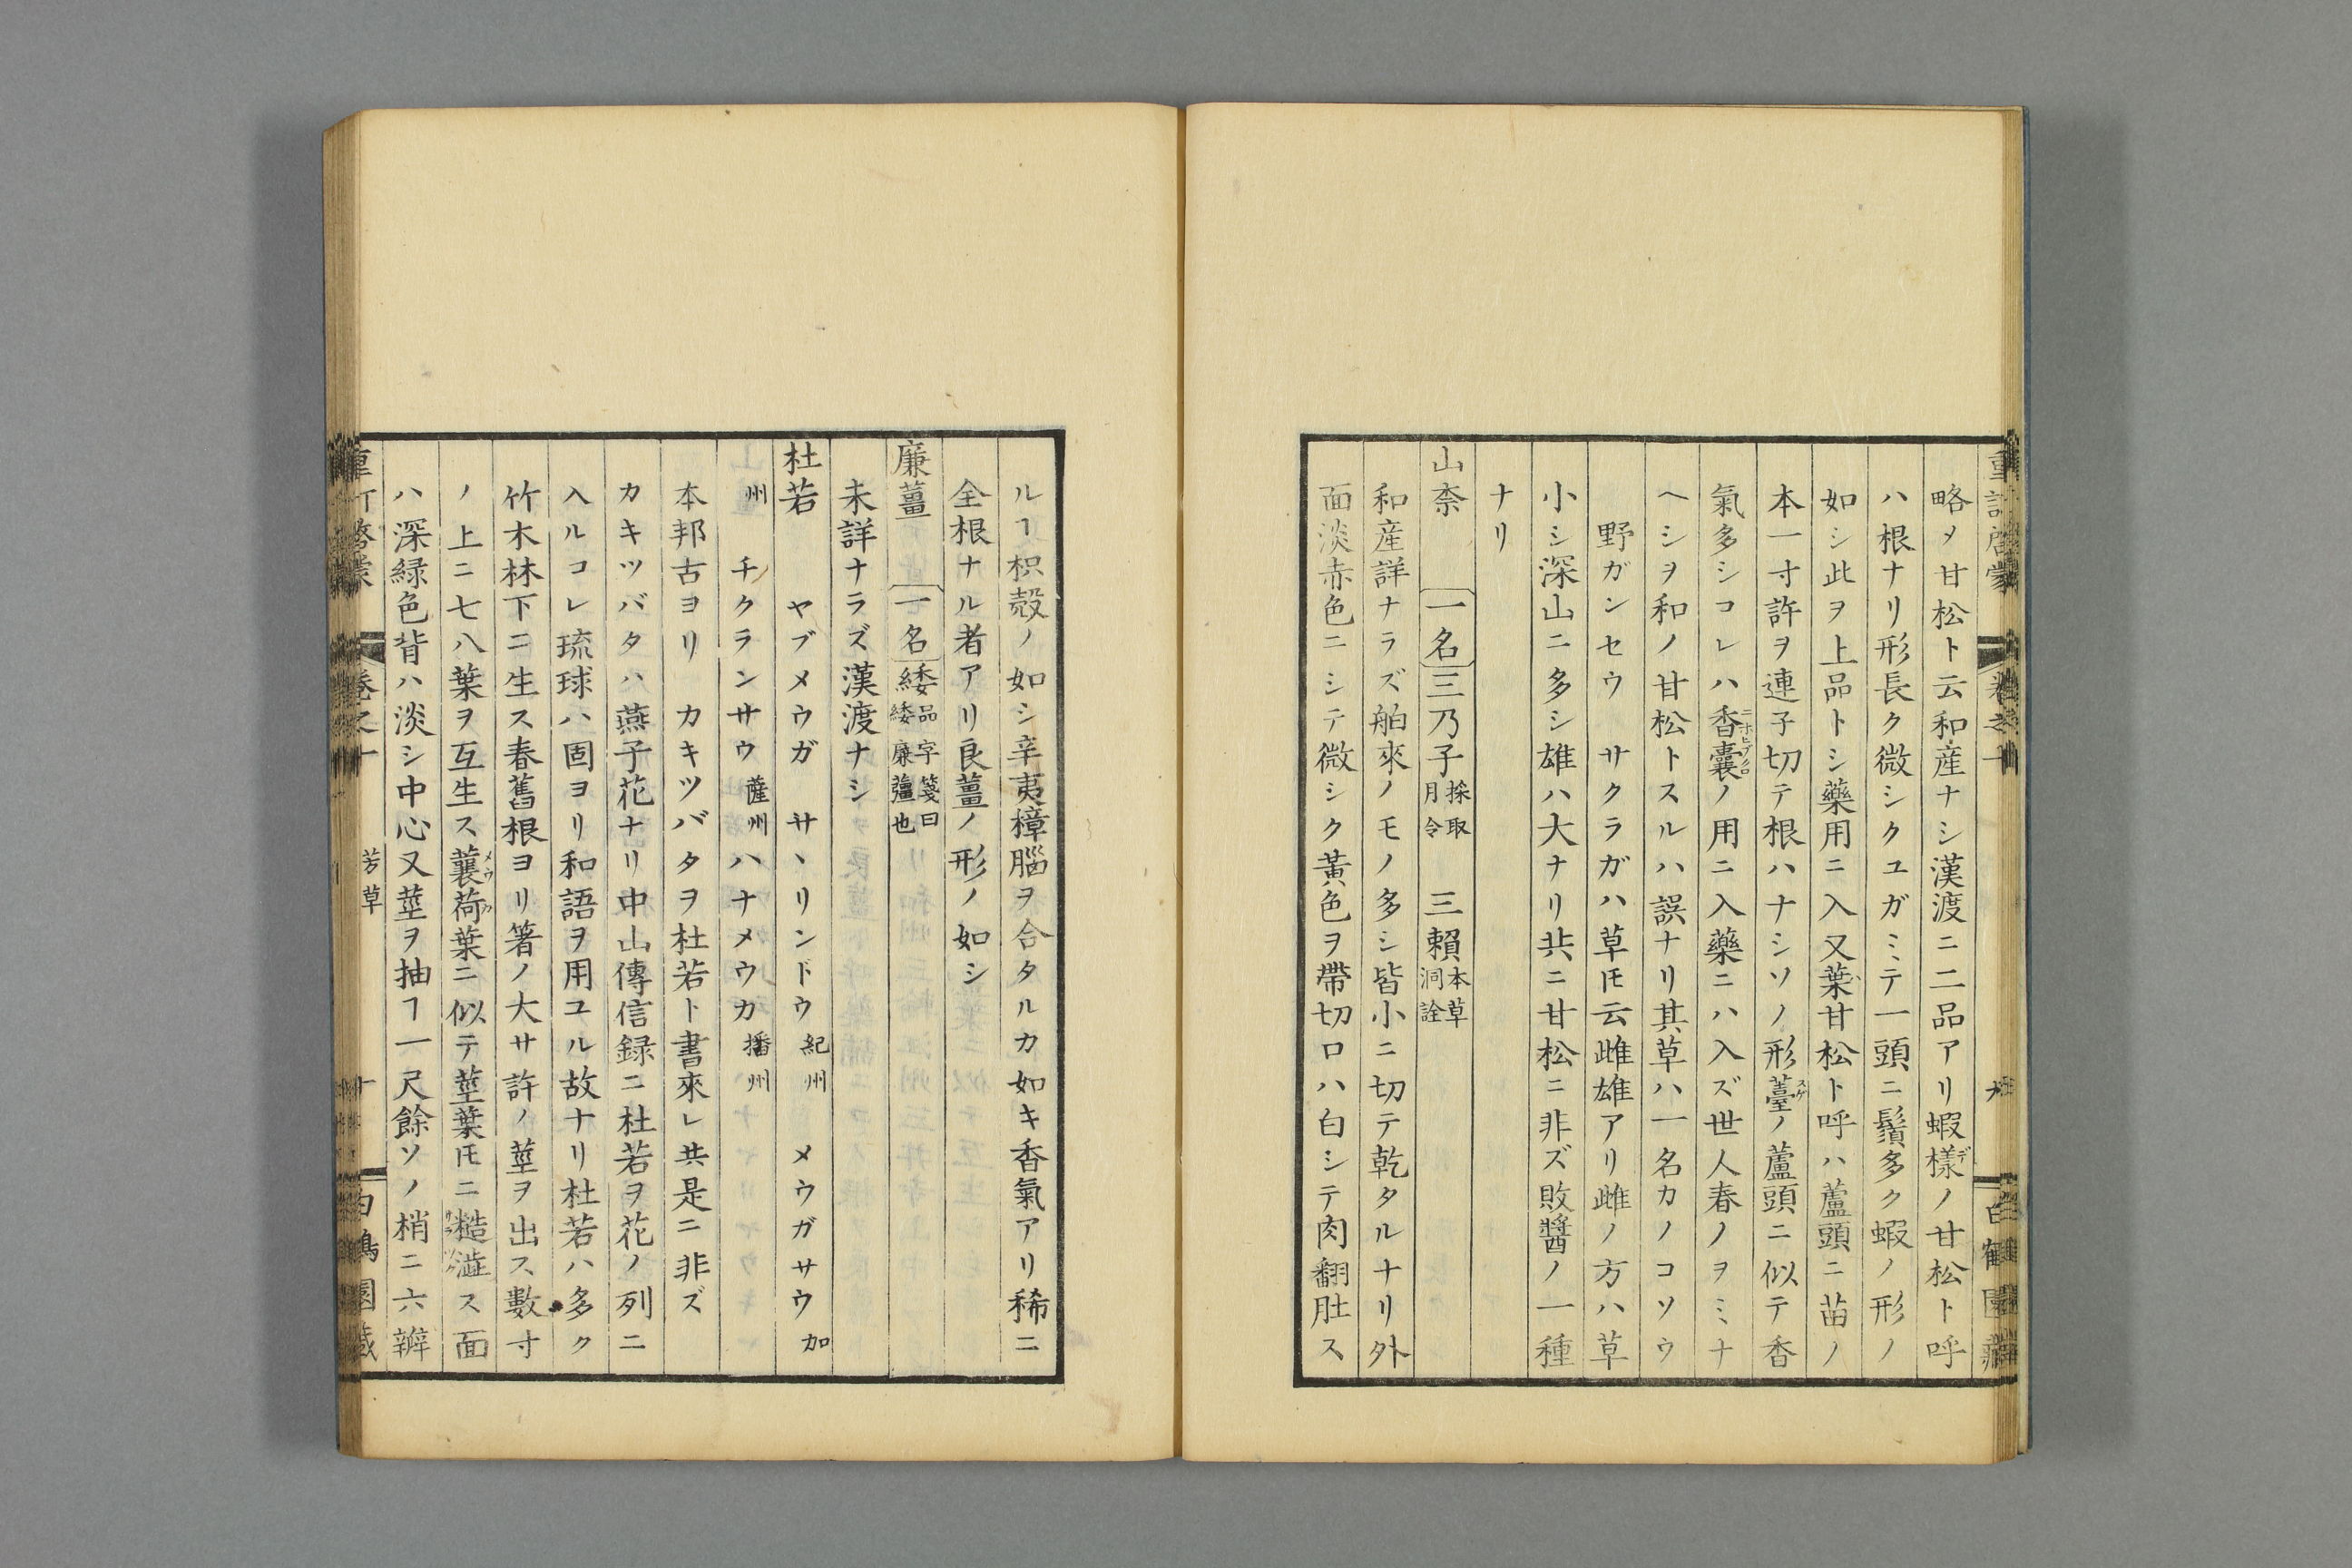 重訂啓蒙 卷之十 九 白鶴園藏
略〆甘松ト云和産ナシ漢渡ニ二品アリ蝦樣デノ甘松ト呼
ハ根ナリ形長ク微シクユガミテ一頭ニ鬚多ク蝦ノ形ノ
如シ此ヲ上品トシ藥用ニ入又葉甘松ト呼ハ蘆頭ニ苗ノ
本一寸許ヲ連子切テ根ハナシソノ形薹スゲノ蘆頭ニ似テ香
氣多シコレハ香囊ニホヒブクロノ用ニ入藥ニハ入ズ世人春ノヲミナ
ヘシヲ和ノ甘松トスルハ誤ナリ其草ハ一名カノコソウ
野ガンセウ サクラガハ草𪜈云雌雄アリ雌ノ方ハ草
小シ深山ニ多シ雄ハ大ナリ共ニ甘松ニ非ズ敗醬ノ一種
ナリ
山柰 一名 三乃子採取月令 三賴本草洞詮
和産詳ナラズ舶來ノモノ多シ皆小ニ切テ乾タルナリ外
面淡赤色ニシテ微シク黃色ヲ帶切口ハ白シテ肉翻肚ス
ルヿ枳殼ノ如シ辛夷樟腦ヲ合タルカ如キ香氣アリ稀ニ
全根ナル者アリ良薑ノ形ノ如シ
廉薑 一名 緌品字箋曰緌廉薑也
未詳ナラズ漢渡ナシ
杜若 ヤブメウガ サヽリンドウ紀州 メウガサウ加
州 チクランサウ薩州 ハナメウカ播州
本邦古ヨリ カキツバタヲ杜若ト書來レ共是ニ非ズ
カキツバタハ燕子花ナリ中山傳信録ニ杜若ヲ花ノ列ニ
入ルコレ琉球ハ固ヨリ和語ヲ用ユル故ナリ杜若ハ多ク
竹木林下ニ生ス春舊根ヨリ箸ノ大サ許ノ莖ヲ出ス數寸
ノ上ニ七八葉ヲ互生ス蘘荷メウガ葉ニ似テ莖葉𪜈ニ糙澁ス面
ハ深緑色背ハ淡シ中心又莖ヲ抽ヿ一尺餘ソノ梢ニ六瓣
重訂啓蒙 卷之十 芳草 十 白鶴園藏